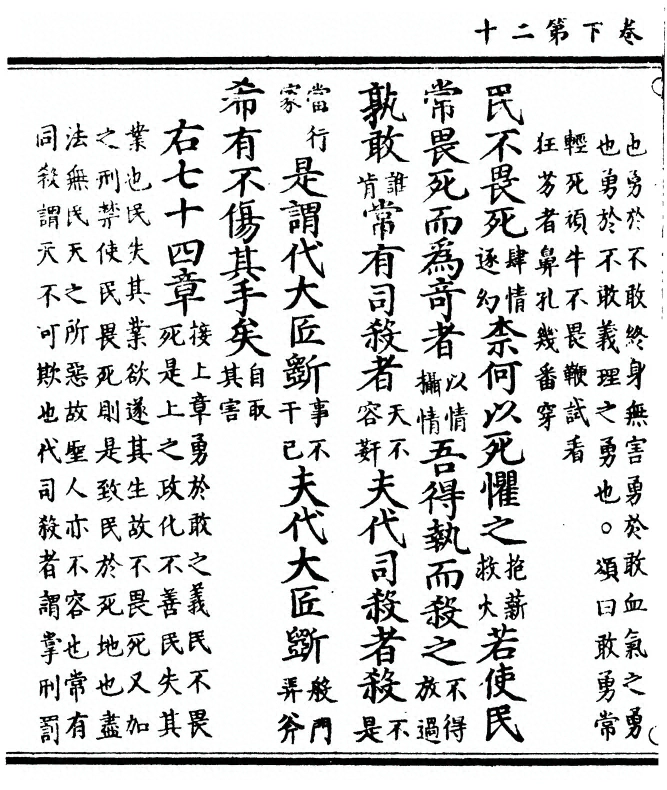 卷下第二十
也勇於不敢終身無害勇於敢血氣之勇
也勇於不敢義理之勇也。頌曰敢勇常
輕死頑牛不畏鞭試看
狂芳者鼻孔幾番穿
民不畏死肆情逐幻柰何以死懼之抱薪救火若使民
常畏死而爲奇者以情攝情吾得執而殺之不得放過
孰敢誰肯常有司殺者天不容姧夫代司殺者殺不是
當行家是謂代大匠斲事不干己夫代大匠斲般門弄斧
希有不傷其手矣自取其害
右七十四章接上章勇於敢之義民不畏死是上之政化不善民失其
業也民失其業欲遂其生故不畏死又加
之刑禁使民畏死則是致民於死地也盡
法無民天之所惡故聖人亦不容也常有
同殺謂天不可欺也代司殺者謂掌刑罰